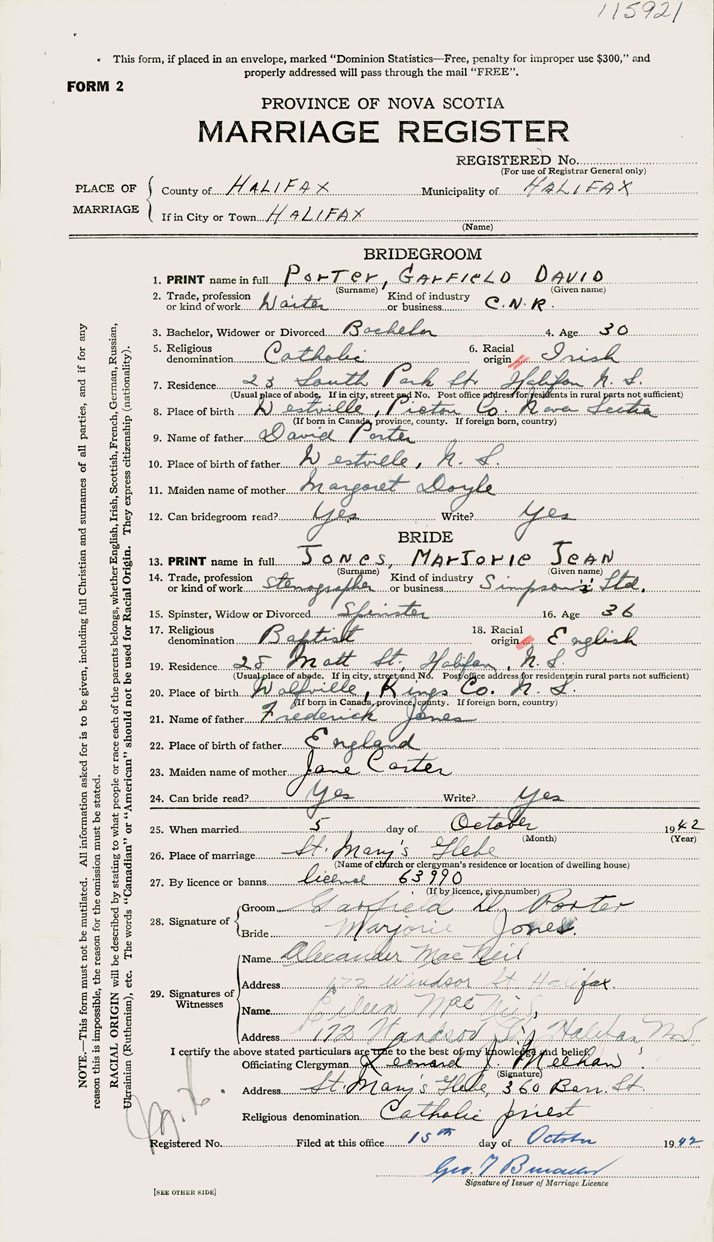 115921
This form, if placed in an envelope, marked "Dominion Statistics—Free, penalty for improper use $300," and
properly addressed will pass through the mail "FREE".
FORM 2
PROVINCE OF NOVA SCOTIA
MARRIAGE REGISTER
REGISTERED No.
(For use of Registrar General only)
PLACE OF MARRIAGE
County of HALIFAX Municipality of HALIFAX
If in City or Town HALIFAX
(Name)
BRIDEGROOM
1. PRINT name in full PORTER, GARFIELD DAVID
(Surname) (Given name)
2. Trade, profession or kind of work Waiter Kind of industry or business C.N.R.
3. Bachelor, Widower or Divorced Bachelor 4. Age 30
5. Religious denomination Catholic 6. Racial origin Irish
7. Residence 23 South Park St. Halifax N.S.
(Usual place of abode. If in city, street and No. Post office address for residents in rural parts not sufficient)
8. Place of birth Westville, Pictou Co. Nova Scotia
(If born in Canada, province, county. If foreign born, country)
9. Name of father David Porter
10. Place of birth of father Westville, N.S.
11. Maiden name of mother Margaret Doyle
12. Can bridegroom read? Yes Write? Yes
BRIDE
13. PRINT name in full JONES, MARJORIE JEAN
(Surname) (Given name)
14. Trade, profession or kind of work Stenographer Kind of industry or business Simpson's Ltd.
15. Spinster, Widow or Divorced Spinster 16. Age 36
17. Religious denomination Baptist 18. Racial origin English
19. Residence 28 Matt St., Halifax, N.S.
(Usual place of abode. If in city, street and No. Post office address for residents in rural parts not sufficient)
20. Place of birth Wolfville, Kings Co. N.S.
(If born in Canada, province, county. If foreign born, country)
21. Name of father Frederick Jones
22. Place of birth of father England
23. Maiden name of mother Jane Carter
24. Can bride read? Yes Write? Yes
25. When married 5 day of October 1942
(Month) (Year)
26. Place of marriage St. Mary's Glebe
(Name of church or clergyman's residence or location of dwelling house)
27. By licence or banns license 63990
(If by licence, give number)
28. Signature of
Groom Garfield D. Porter
Bride Marjorie Jones
29. Signatures of Witnesses
Name Alexander MacNeil
Address 172 Windsor St Halifax
Name Eileen MacNeil
Address 172 Windsor St, Halifax N.S.
I certify the above stated particulars are true to the best of my knowledge and belief.
Officiating Clergyman Leonard J. Meehan
(Signature)
Address St. Mary's Glebe, 360 Barr. St.
Religious denomination Catholic priest
Registered No. Filed at this office 15th day of October 1942
Geo. T
Signature of Issuer of Marriage Licence
[SEE OTHER SIDE]
NOTE.—This form must not be mutilated. All information asked for is to be given, including full Christian and surnames of all parties, and if for any
reason this is impossible, the reason for the omission must be stated.
RACIAL ORIGIN will be described by stating to what people or race each of the parents belongs, whether English, Irish, Scottish, French, German, Russian,
Ukrainian (Ruthenian), etc. The words "Canadian" or "American" should not be used for Racial Origin. They express citizenship (nationality).